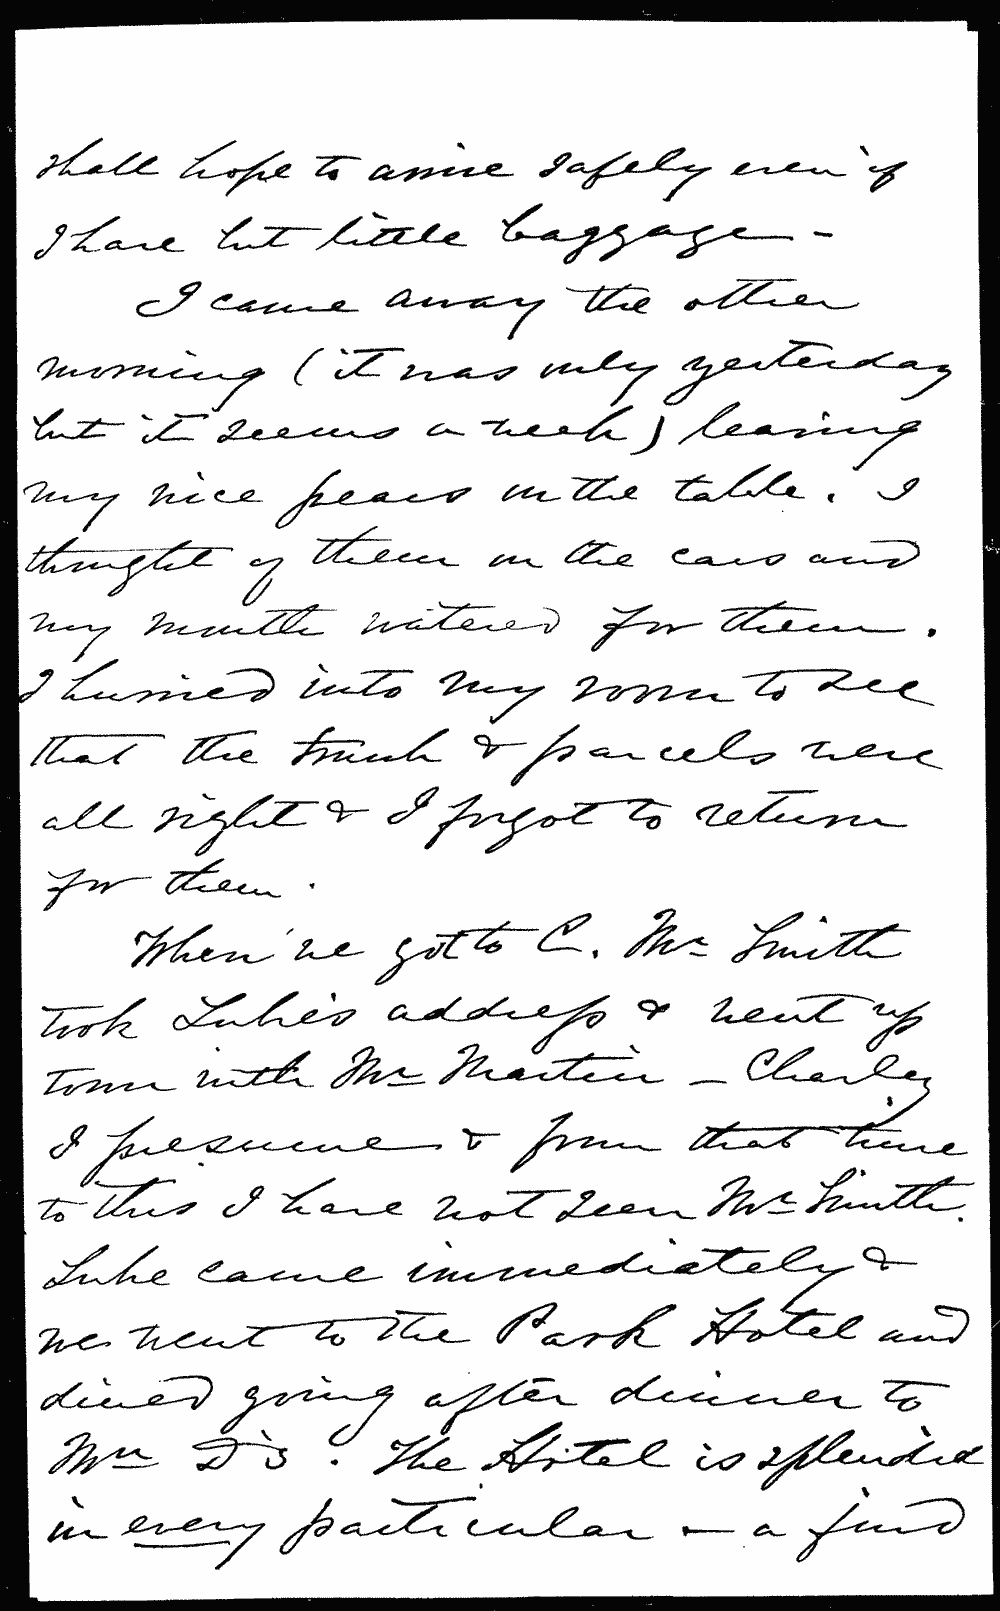 shall hope to arrive safely even if
I have but little baggage –
I came away the other
morning (it was only yesterday
but it seems a week) leaving
my nice pears on the table. I
thought of them on the cars and
my mouth watered for them.
I hurried into my room to see
that the trunk & parcels were
all right & I forgot to return
for them.
When we got to C. Mr Smith
took Luke's address & went up
town with Mr Martin – Charley
I presume & from that time
to this I have not seen Mr Smith.
Luke came immediately &
we went to the Park Hotel and
dined going after dinner to
Mrs D's. The Hotel is splendid
in every particular – a